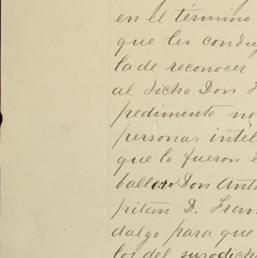 en el término
que les condu
la de reconocer
al dicho Don
pedimento no
personas intel
que lo fueron
ballero Don Anto
pitán D. Fran
dalgo para que
los del susodich